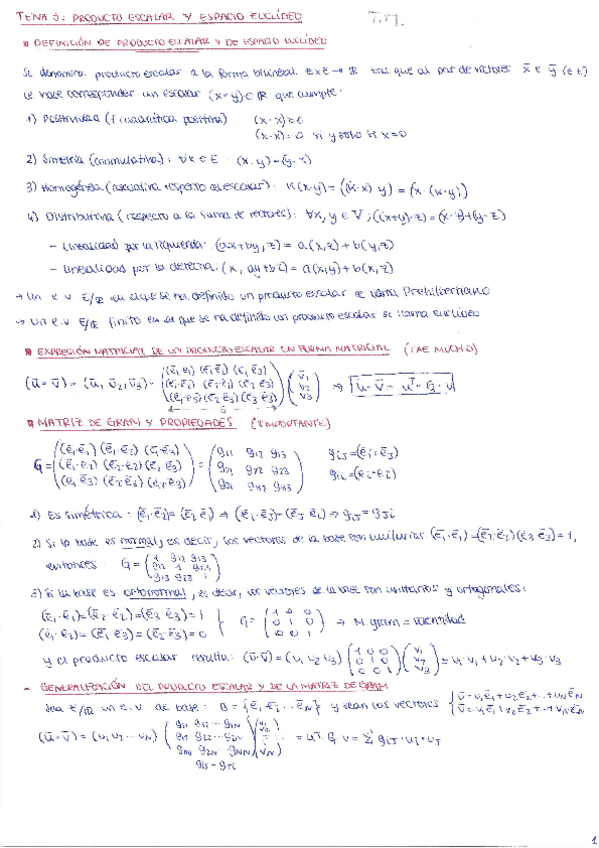 TEMA 5: PRODUCTO ESCALAR Y ESPACIO EUCLÍDEO
* DEFINICIÓN DE PRODUCTO ESCALAR Y DE ESPACIO EUCLÍDEO
Se denomina producto escalar a la forma bilineal ExE → R tal que al par de vectores x̄ e ȳ (∈ E)
le hace corresponder un escalar (x·y) ∈ R que cumpla:
1) Positividad (f cuadrática positiva) (x·x) ≥ 0
(x·x) = 0 si y solo si x=0
2) Simetría (conmutativa): ∀x ∈ E (x·y) = (y·x)
3) Homogénea (asociativa respecto al escalar): K(x·y) = ((Kx)·y) = (x·(K·y))
4) Distributiva (respecto a la suma de vectores): ∀x, y ∈ V; ((x+y)·z) = (x·z)+(y·z)
- Linealidad por la izquierda: (ax+by, z) = a(x,z) + b(y,z)
- Linealidad por la derecha: (x, ay+bz) = a(x,y) + b(x,z)
→ Un e.v E/R en el que se ha definido un producto escalar se llama Prehilbertiano
→ Un e.v E/R finito en el que se ha definido un producto escalar se llama EUCLÍDEO
* EXPRESIÓN MATRICIAL DE UN PRODUCTO ESCALAR EN FORMA MATRICIAL (CAE MUCHO)
(ū·v̄) = (u₁ u₂ u₃) · ((ē₁ē₁) (ē₁ē₂) (ē₁ē₃)) (v₁) ⇒ ū·v̄ = uᵀ·G·v
((ē₁ē₂) (ē₂ē₂) (ē₂ē₃)) (v₂)
((ē₁ē₃) (ē₂ē₃) (ē₃ē₃)) (v₃)
G
* MATRIZ DE GRAM Y PROPIEDADES (IMPORTANTE)
((ē₁·ē₁) (ē₁·ē₂) (ē₁·ē₃)) (g₁₁ g₁₂ g₁₃) gᵢⱼ = (ēᵢ·ēⱼ)
G = ((ē₁·ē₂) (ē₂·ē₂) (ē₂·ē₃)) = (g₂₁ g₂₂ g₂₃) gᵢᵢ = (ēᵢ·ēᵢ)
((ē₁·ē₃) (ē₂·ē₃) (ē₃·ē₃))
1) Es simétrica: (ē₁·ē₂) = (ē₂·ē₁) ⇒ (ēᵢ·ēⱼ) = (ēⱼ·ēᵢ) ⇒ gᵢⱼ = gⱼᵢ
2) Si la base es normal, es decir, los vectores de la base son unitarios (ē₁·ē₁) = (ē₂·ē₂) (ē₃·ē₃) = 1,
entonces: G = (1 g₁₂ g₁₃)
(g₁₂ 1 g₂₃)
(g₁₃ g₂₃ 1)
3) Si la base es ortonormal, es decir, los vectores de la base son unitarios y ortogonales:
(ē₁·ē₁) = (ē₂·ē₂) = (ē₃·ē₃) = 1
(ē₁·ē₂) = (ē₁·ē₃) = (ē₂·ē₃) = 0 } G = (1 0 0 / 0 1 0 / 0 0 1) ⇒ M. gram = identidad
y el producto escalar resulta: (ū·v̄) = (u₁ u₂ u₃) (1 0 0 / 0 1 0 / 0 0 1) (v₁ / v₂ / v₃) = u₁·v₁ + u₂·v₂ + u₃·v₃
- GENERALIZACIÓN DEL PRODUCTO ESCALAR Y DE LA MATRIZ DE GRAM
Sea E/R un e.v de base: B = {ē₁, ē₂ ... ēN} y sean los vectores { ū = u₁ē₁ + u₂ē₂ + ... + uNēN
v̄ = v₁ē₁ + v₂ē₂ + ... + vNēN
(ū·v̄) = (u₁ u₂ ... uN) (g₁₁ g₁₂ ... g₁N / g₁₂ g₂₂ ... g₂N / g₁N g₂N ... gNN) (v₁ / v₂ / ... / vN) = uᵀ·G·v = Σ gᵢⱼ·uᵢ·vⱼ
gᵢⱼ = gⱼᵢ
1